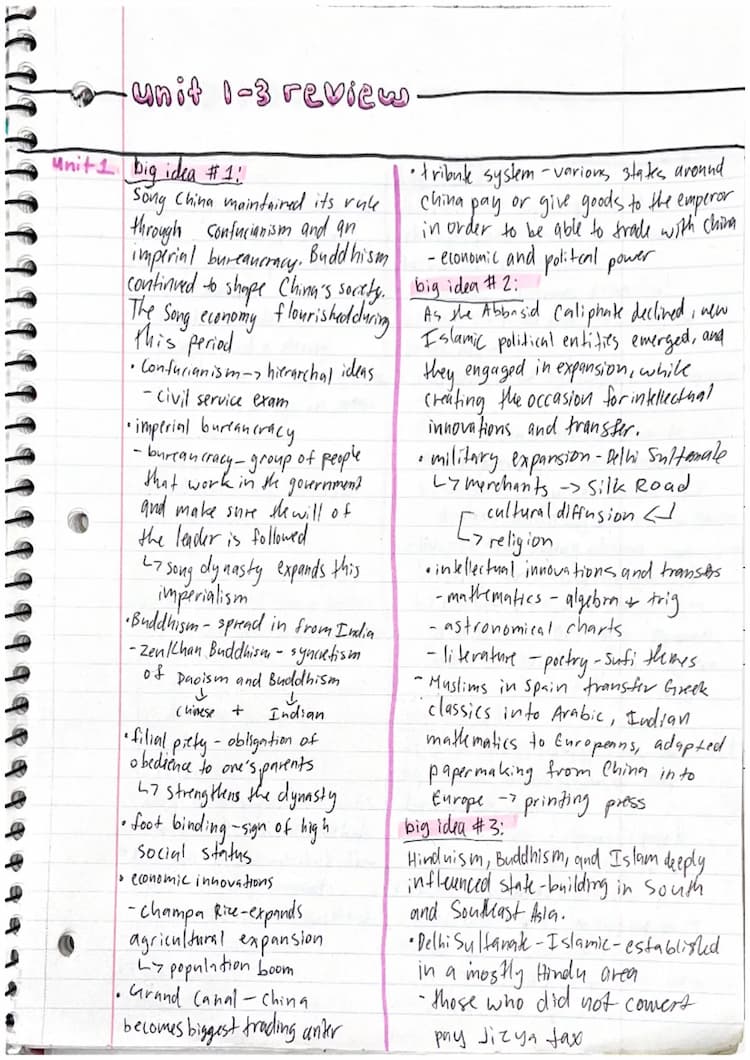 unit 1-3 review
unit 1
big idea #1:
Song China maintained its rule
through confucianism and an
imperial bureaucracy. Buddhism
continued to shape China's society.
The Song economy flourished during
this period
• Confucianism → hierarchal ideas
- civil service exam
• imperial bureaucracy
- bureaucracy - group of people
that work in the government
and make sure the will of
the leader is followed
↳ song dynasty expands this
imperialism
• Buddhism - spread in from India
- Zen/Chan Buddhism - syncretism
of Daoism and Buddhism
↓ ↓
Chinese + Indian
• filial piety - obligation of
obedience to one's parents
↳ strengthens the dynasty
• foot binding - sign of high
social status
• economic innovations
- Champa Rice - expands
agricultural expansion
↳ population boom
• Grand Canal - China
becomes biggest trading
• tribute system - various states around
China pay or give goods to the emperor
in order to be able to trade with China
- economic and political power
big idea #2:
As the Abbasid Caliphate declined, new
Islamic political entities emerged, and
they engaged in expansion, while
creating the occasion for intellectual
innovations and transfer.
• military expansion - Delhi Sultanate
↳ merchants → Silk Road
cultural diffusion ↲
↳ religion
• intellectual innovations and transfers
- mathematics - algebra + trig
- astronomical charts
- literature - poetry - Sufi themes
- Muslims in Spain transfer Greek
classics into Arabic, Indian
mathematics to Europeans, adapted
papermaking from China into
Europe → printing press
big idea #3:
Hinduism, Buddhism, and Islam deeply
influenced state-building in South
and Southeast Asia.
• Delhi Sultanate - Islamic - established
in a mostly Hindu area
- those who did not convert
pay Jizya tax